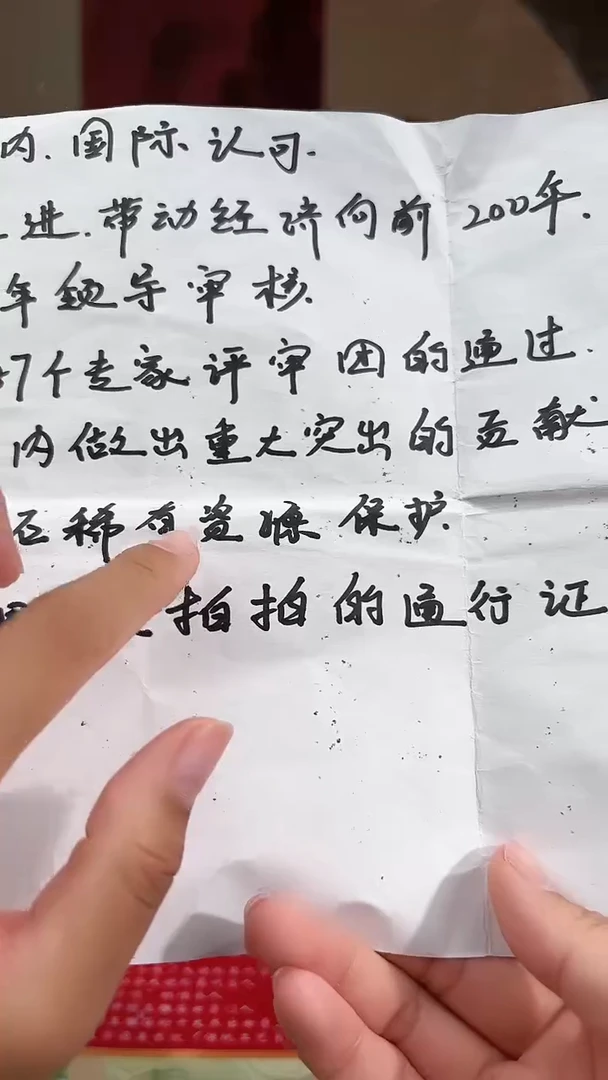 内.国际认可.
进.带动经济向前200年.
年领导审核.
7个专家评审团的通过.
内做出重大突出的贡献
石稀有资源保护.
拍拍的通行证